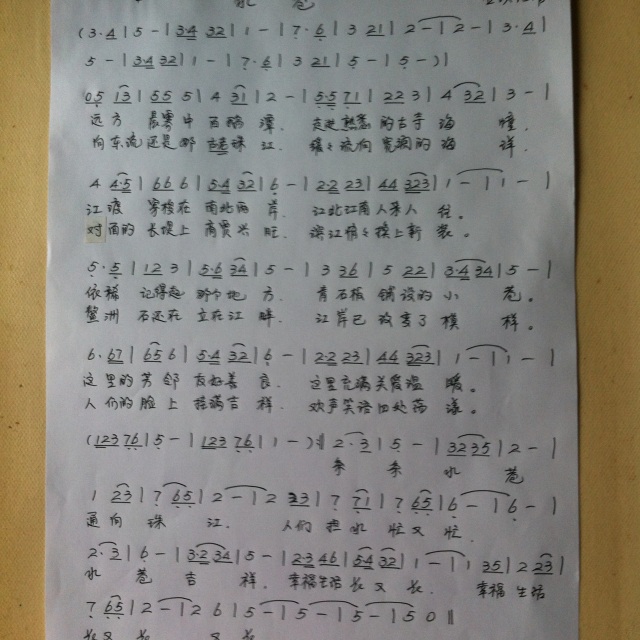 水 巷
(3·4|5 -|34 32|1 -|7·6|3 21|2 -|2 -|3·4|
5 -|34 32|1 -|7·6|3 21|5 -|5 -)|
05 13|55 5|4 31|2 -|5·5 71|22 3|4 32|3 -|
远方 晨雾中 潭. 的古寺海 幢.
向东流 还是那 珠 江. 流向宽阔的海 洋.
4 4·5|66 6|5·4 32|6 -|2·2 23|44 323|1 -|1 -|
江渡 穿梭在 南北两 岸. 江北江南人来人 往。
对面的 长堤上 商贾兴 旺. 滨江 楼上新 装。
5·5|12 3|5·6 34|5 -|3 36|5 22|3·4 34|5 -|
依稀 记得起 那个地 方. 青石板 铺设的小 巷。
鳌洲 石还在 立在江 畔. 江岸已 改变了模 样。
6·67|65 6|5·4 32|6 -|2·2 23|44 323|1 -|1 -|
这里的芳邻 友好善 良. 这里充满关爱温 暖。
人们的脸上 挂满吉 祥. 欢声笑语四处荡 漾。
(123 76|5 -|123 76|1 -):‖2·3|5 -|32 35|2 -|
水 巷
1 23|7 65|2 -|2 23|7 71|7 65|6 -|6 -|
通向 珠 江. 人们 在水 忙又 忙.
2·3|6 -|3·2 34|5 -|2·3 46|54 32|1 -|1 35|2 23|
水 巷 吉 祥. 幸福生活 长又 长. 幸福 生活
7 65|2 -|2 6|5 -|5 -|5 -|5 0‖
长又 长 又 长